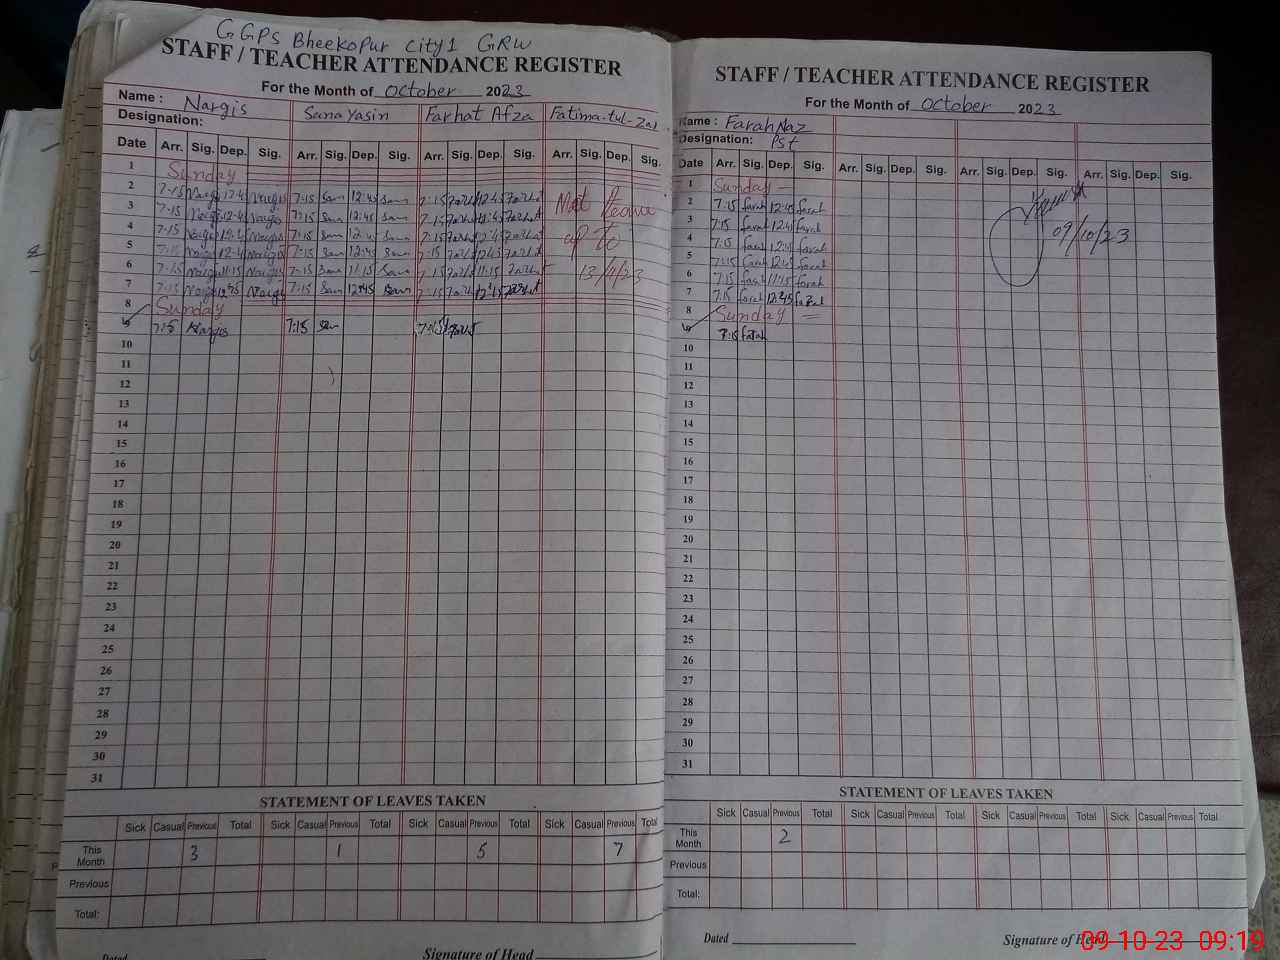 GGPS Bheekopur City1 GRW
STAFF / TEACHER ATTENDANCE REGISTER
For the Month of October 2023
Name : Nargis Sana Yasin Farhat Afza Fatima-tul-Zai
Designation:
Date Arr. Sig. Dep. Sig. Arr. Sig. Dep. Sig. Arr. Sig. Dep. Sig. Arr. Sig. Dep. Sig.
1 Sunday
2 7:15 Nargis 12:4 Nargis 7:15 San 12:45 San 7:15 12:45
3 7:15 Nargis 12:4 Nargis 7:15 San 12:45 San 7:15 12:45
4 7:15 Nargis 12:4 Nargis 7:15 San 12:4 San 7:15 12:45 up to
5 7:15 Nargis 12:4 Nargis 7:15 San 12:45 San 7:15 12:45
6 7:15 Nargis 11:15 Nargis 7:15 San 11:15 San 7:15 11:15
7 7:15 Nargis 12:45 Nargis 7:15 San 12:45 San 7:15 12:45
8 Sunday
9 7:15 Nargis 7:15 San 7:15
10
11
12
13
14
15
16
17
18
19
20
21
22
23
24
25
26
27
28
29
30
31
STATEMENT OF LEAVES TAKEN
Sick Casual Previous Total Sick Casual Previous Total Sick Casual Previous Total Sick Casual Previous Total
This Month 3 1 5 7
Previous
Total:
Dated
Signature of Head
STAFF / TEACHER ATTENDANCE REGISTER
For the Month of October 2023
Name : Farah Naz
Designation: Pst
Date Arr. Sig. Dep. Sig. Arr. Sig. Dep. Sig. Arr. Sig. Dep. Sig. Arr. Sig. Dep. Sig.
1 Sunday
2 7:15 farah 12:45 farah
3 7:15 farah 12:45 farah
09/10/23
4 7:15 farah 12:45 farah
5 7:15 farah 12:45 farah
6 7:15 farah 11:15 farah
7 7:15 farah 12:45 farah
8 Sunday
9 7:15 farah
10
11
12
13
14
15
16
17
18
19
20
21
22
23
24
25
26
27
28
29
30
31
STATEMENT OF LEAVES TAKEN
Sick Casual Previous Total Sick Casual Previous Total Sick Casual Previous Total Sick Casual Previous Total
This Month 2
Previous
Total:
Dated Signature of Head
09-10-23 09:19